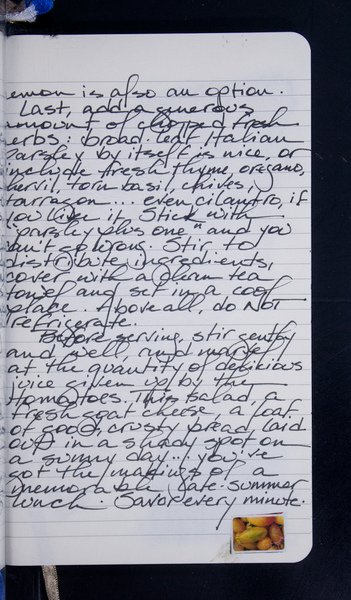 lemon is also an option.
Last, add a generous
amount of chopped fresh
herbs: broad-leaf Italian
Parsley by itself is nice, or
include fresh thyme, oregano,
chervil, torn basil, chives,
tarragon... even cilantro, if
you like it. Stick with
"parsley plus one" and you
can't go wrong. Stir, to
distribute ingredients,
cover with a clean tea
towel and set in a cool
place. Above all, do NOT
refrigerate.
Before serving, stir gently
and well, and marvel
at the quantity of delicious
juice given up by the
tomatoes. This salad, a
fresh goat cheese, a loaf
of good, crusty bread, laid
out in a shady spot on
a sunny day... you've
got the makings of a
memorable late-summer
lunch. Savor every minute.